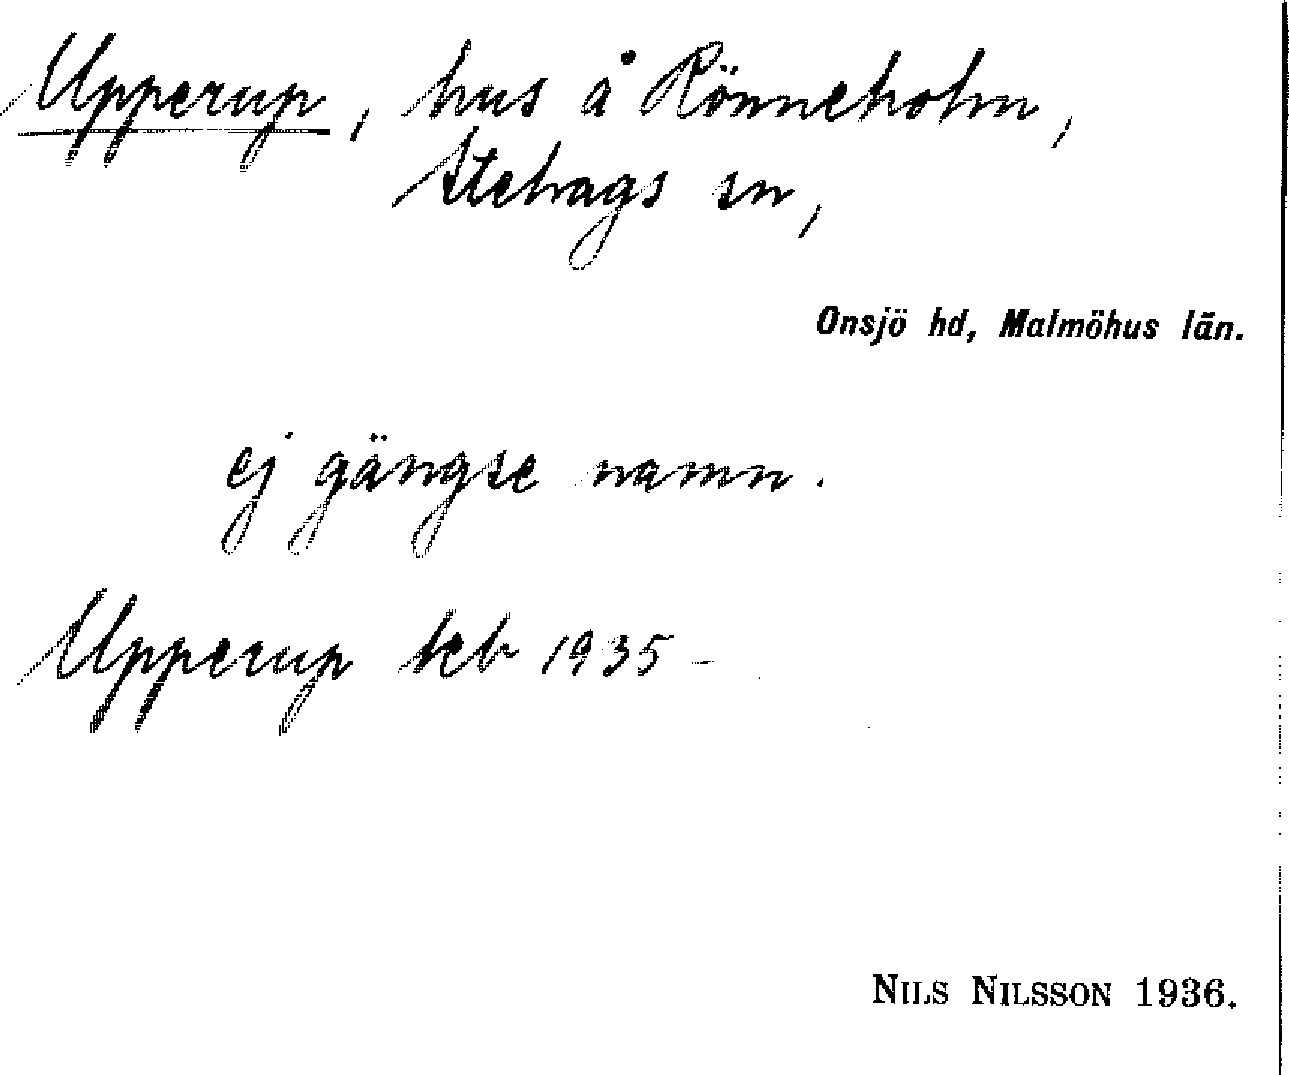 Upperup, hus å Rönneholm,
Stehags sn,
Onsjö hd, Malmöhus län.
ej gängse namn.
Upperup teb 1935 -
NILS NILSSON 1936.